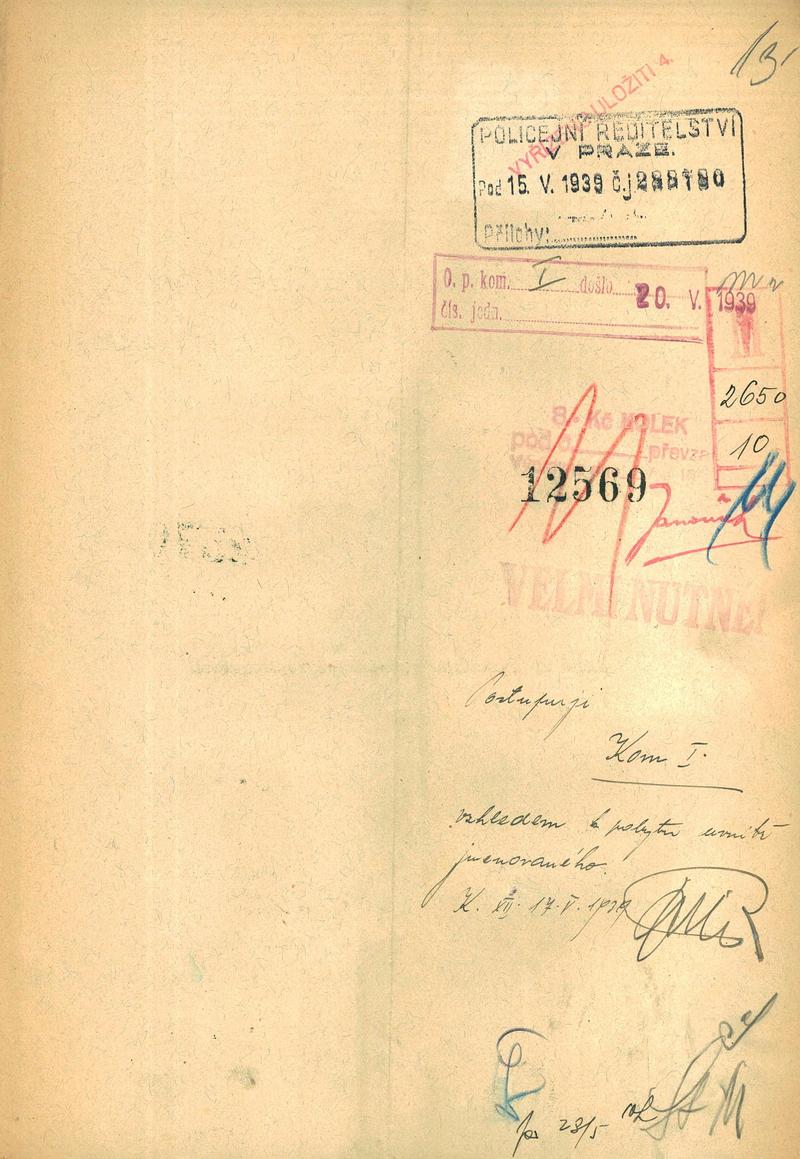 13
ULOŽITI 4.
POLICEJNÍ ŘEDITELSTVÍ
V PRAZE.
Pod 15. V. 1939 č.j.
Přílohy:
O. p. kom. I došlo 20. V. 1939
čís. jedn.
2650
8.- Kč KOLEK
10
pod č. převza
12569
VELMI NUTNÉ!
Postupuji
Kom I.
vzhledem k pobytu uvnitř
jmenovaného.
K. XII. 17. V. 1939
28/5